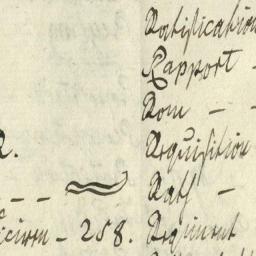 Ratification
Rapport -
Rom - -
R.
Requisition
- - Rath -
- 258. Regiment